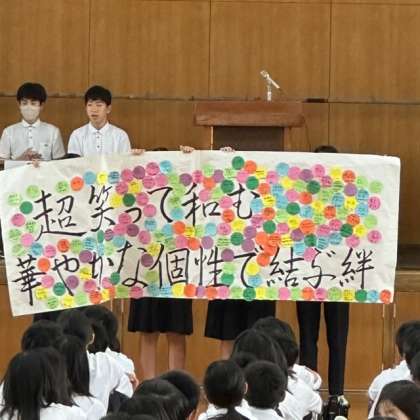 超笑って和む
華やかな個性で結ぶ絆